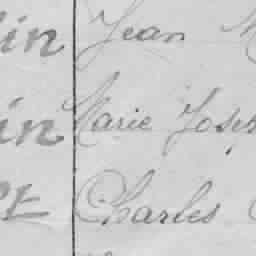 in Jean M
in Marie Josep
et Charles